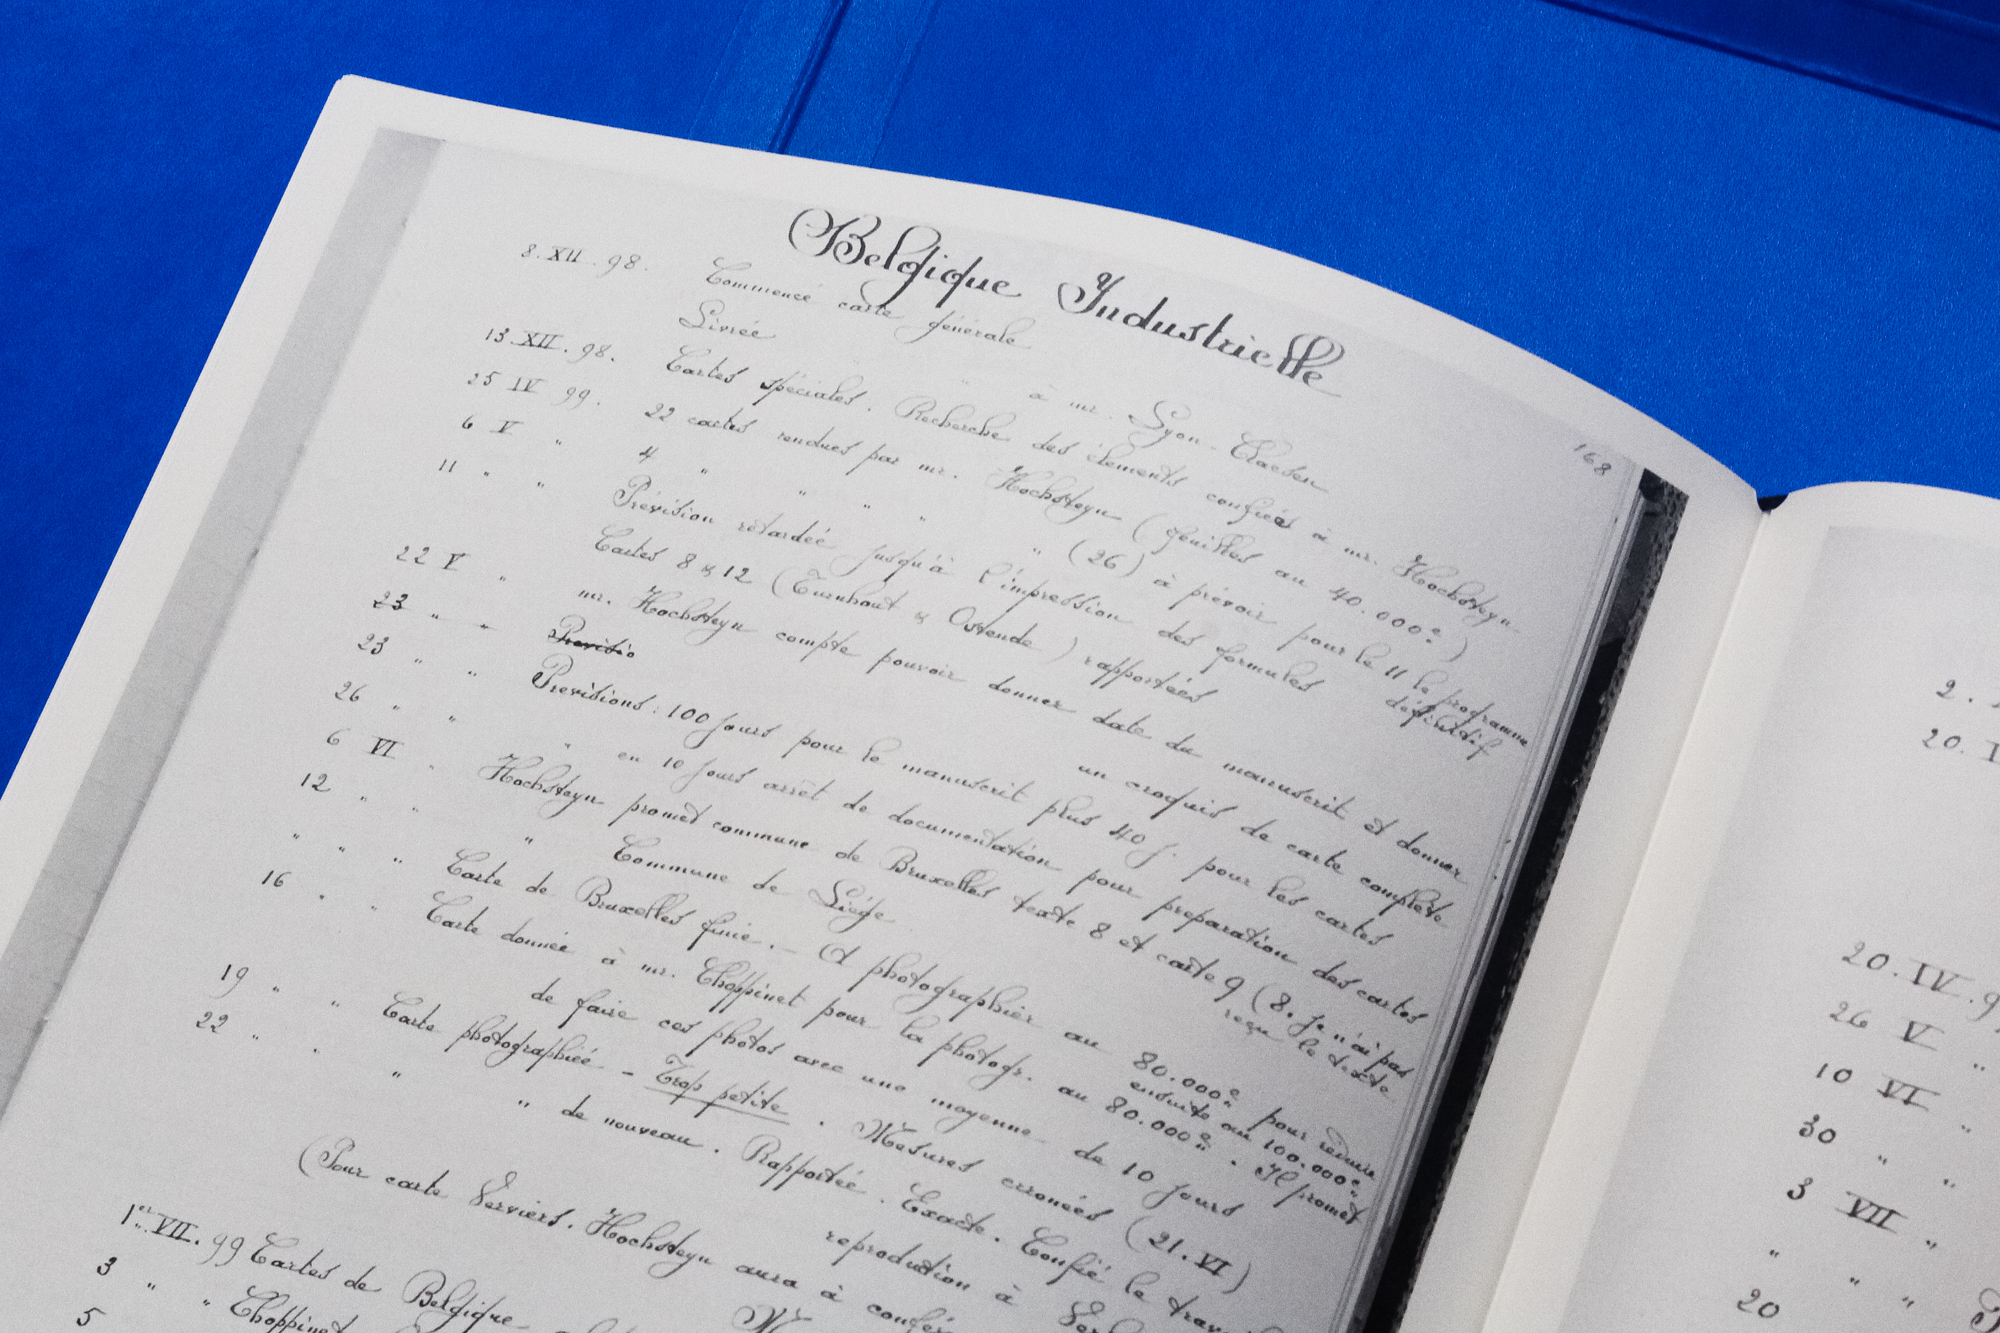 Belgique Industrielle
168
8.XII.98. Commencé carte générale
Livrée " à mr. Lyon-Claesen
13.XII.98. Cartes spéciales. Recherche des éléments confiée à mr. Hochsteyn
25 IV 99. 22 cartes rendues par mr. Hochsteyn (feuilles au 40.000e)
6 V " 4 " " " " " (26) à prévoir pour le 11 le programme définitif
11 " " Prévision retardée jusqu'à l'impression des formules
Cartes 8 & 12 (Turnhout & Ostende) rapportées
22 V " mr. Hochsteyn compte pouvoir donner date du manuscrit et donner
un croquis de carte complète
23 " " Prévisio
23 " " Prévisions : 100 jours pour le manuscrit plus 40 j. pour les cartes
26 " " " en 10 jours arrêt de documentation pour préparation des cartes
6 VI " Hochsteyn promet commune de Bruxelles texte 8 et carte 9 (8. Je n'ai pas
reçu le texte
12 " " " Commune de Liége
" " " Carte de Bruxelles finie. - A photographier au 80.000e pour réduire
ensuite au 100.000e
16 " " Carte donnée à mr. Choppinet pour la photogr. au 80.000e. Il promet
de faire ces photos avec une moyenne de 10 jours
19 " " Carte photographiée - Trop petite. Mesures erronées (21.VI)
22 " " " " de nouveau. Rapportée. Exacte. Confié le trav
reproduction à
(Pour carte Verviers. Hochsteyn aura à
1er.VII.99 Cartes de Belgique
3 " " Choppinet
5
2.
20.
20.IV.9
26 V "
10 VI "
30 " "
3 VII "
" " "
20